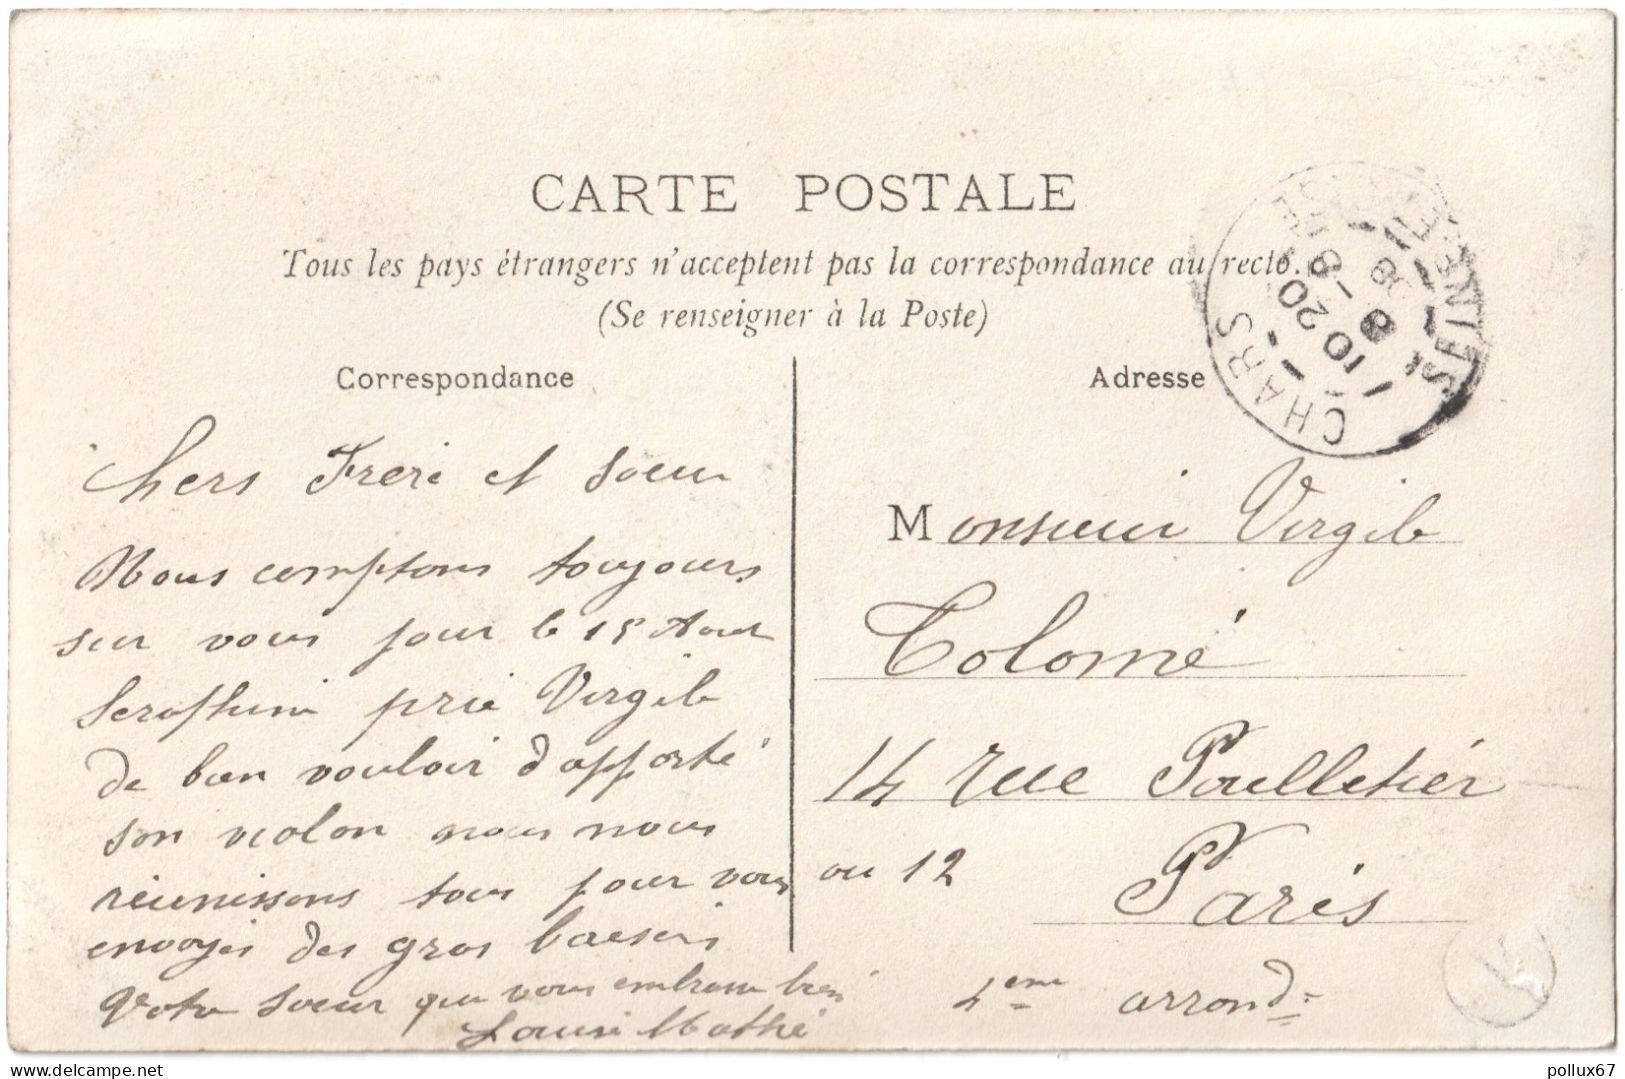 CARTE POSTALE
Tous les pays étrangers n'acceptent pas la correspondance au recto.
(Se renseigner à la Poste)
Correspondance
Chers Frere et Soeur
Nous comptons toujours
sur vous pour le 15 Aout
Seraphine prie Virgile
de bien vouloir d'apporté
son violon nous nous
réunissons tous pour vous
envoyés des gros baisers
Votre Soeur qui vous embrasse bien
Louise Mathé
Adresse
CHARS
10 20
Monsieur Virgile
Colomé
14 rue Poulletier
ou 12 Paris
4eme arrondt
delcampe.net
pollux67